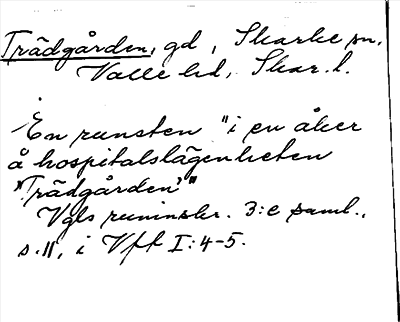 Trädgården, gd, Skarke sn,
Valle hd, Skar. l.
En runsten "i en åker
å hospitalslägenheten
"Trädgården""
Vgls runinskr. 3:e saml.,
s. 11, i Vft I:4-5.